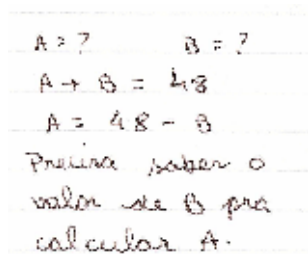 A = ? B = ?
A + B = 48
A = 48 - B
Precisa saber o
valor de B pra
calcular A.